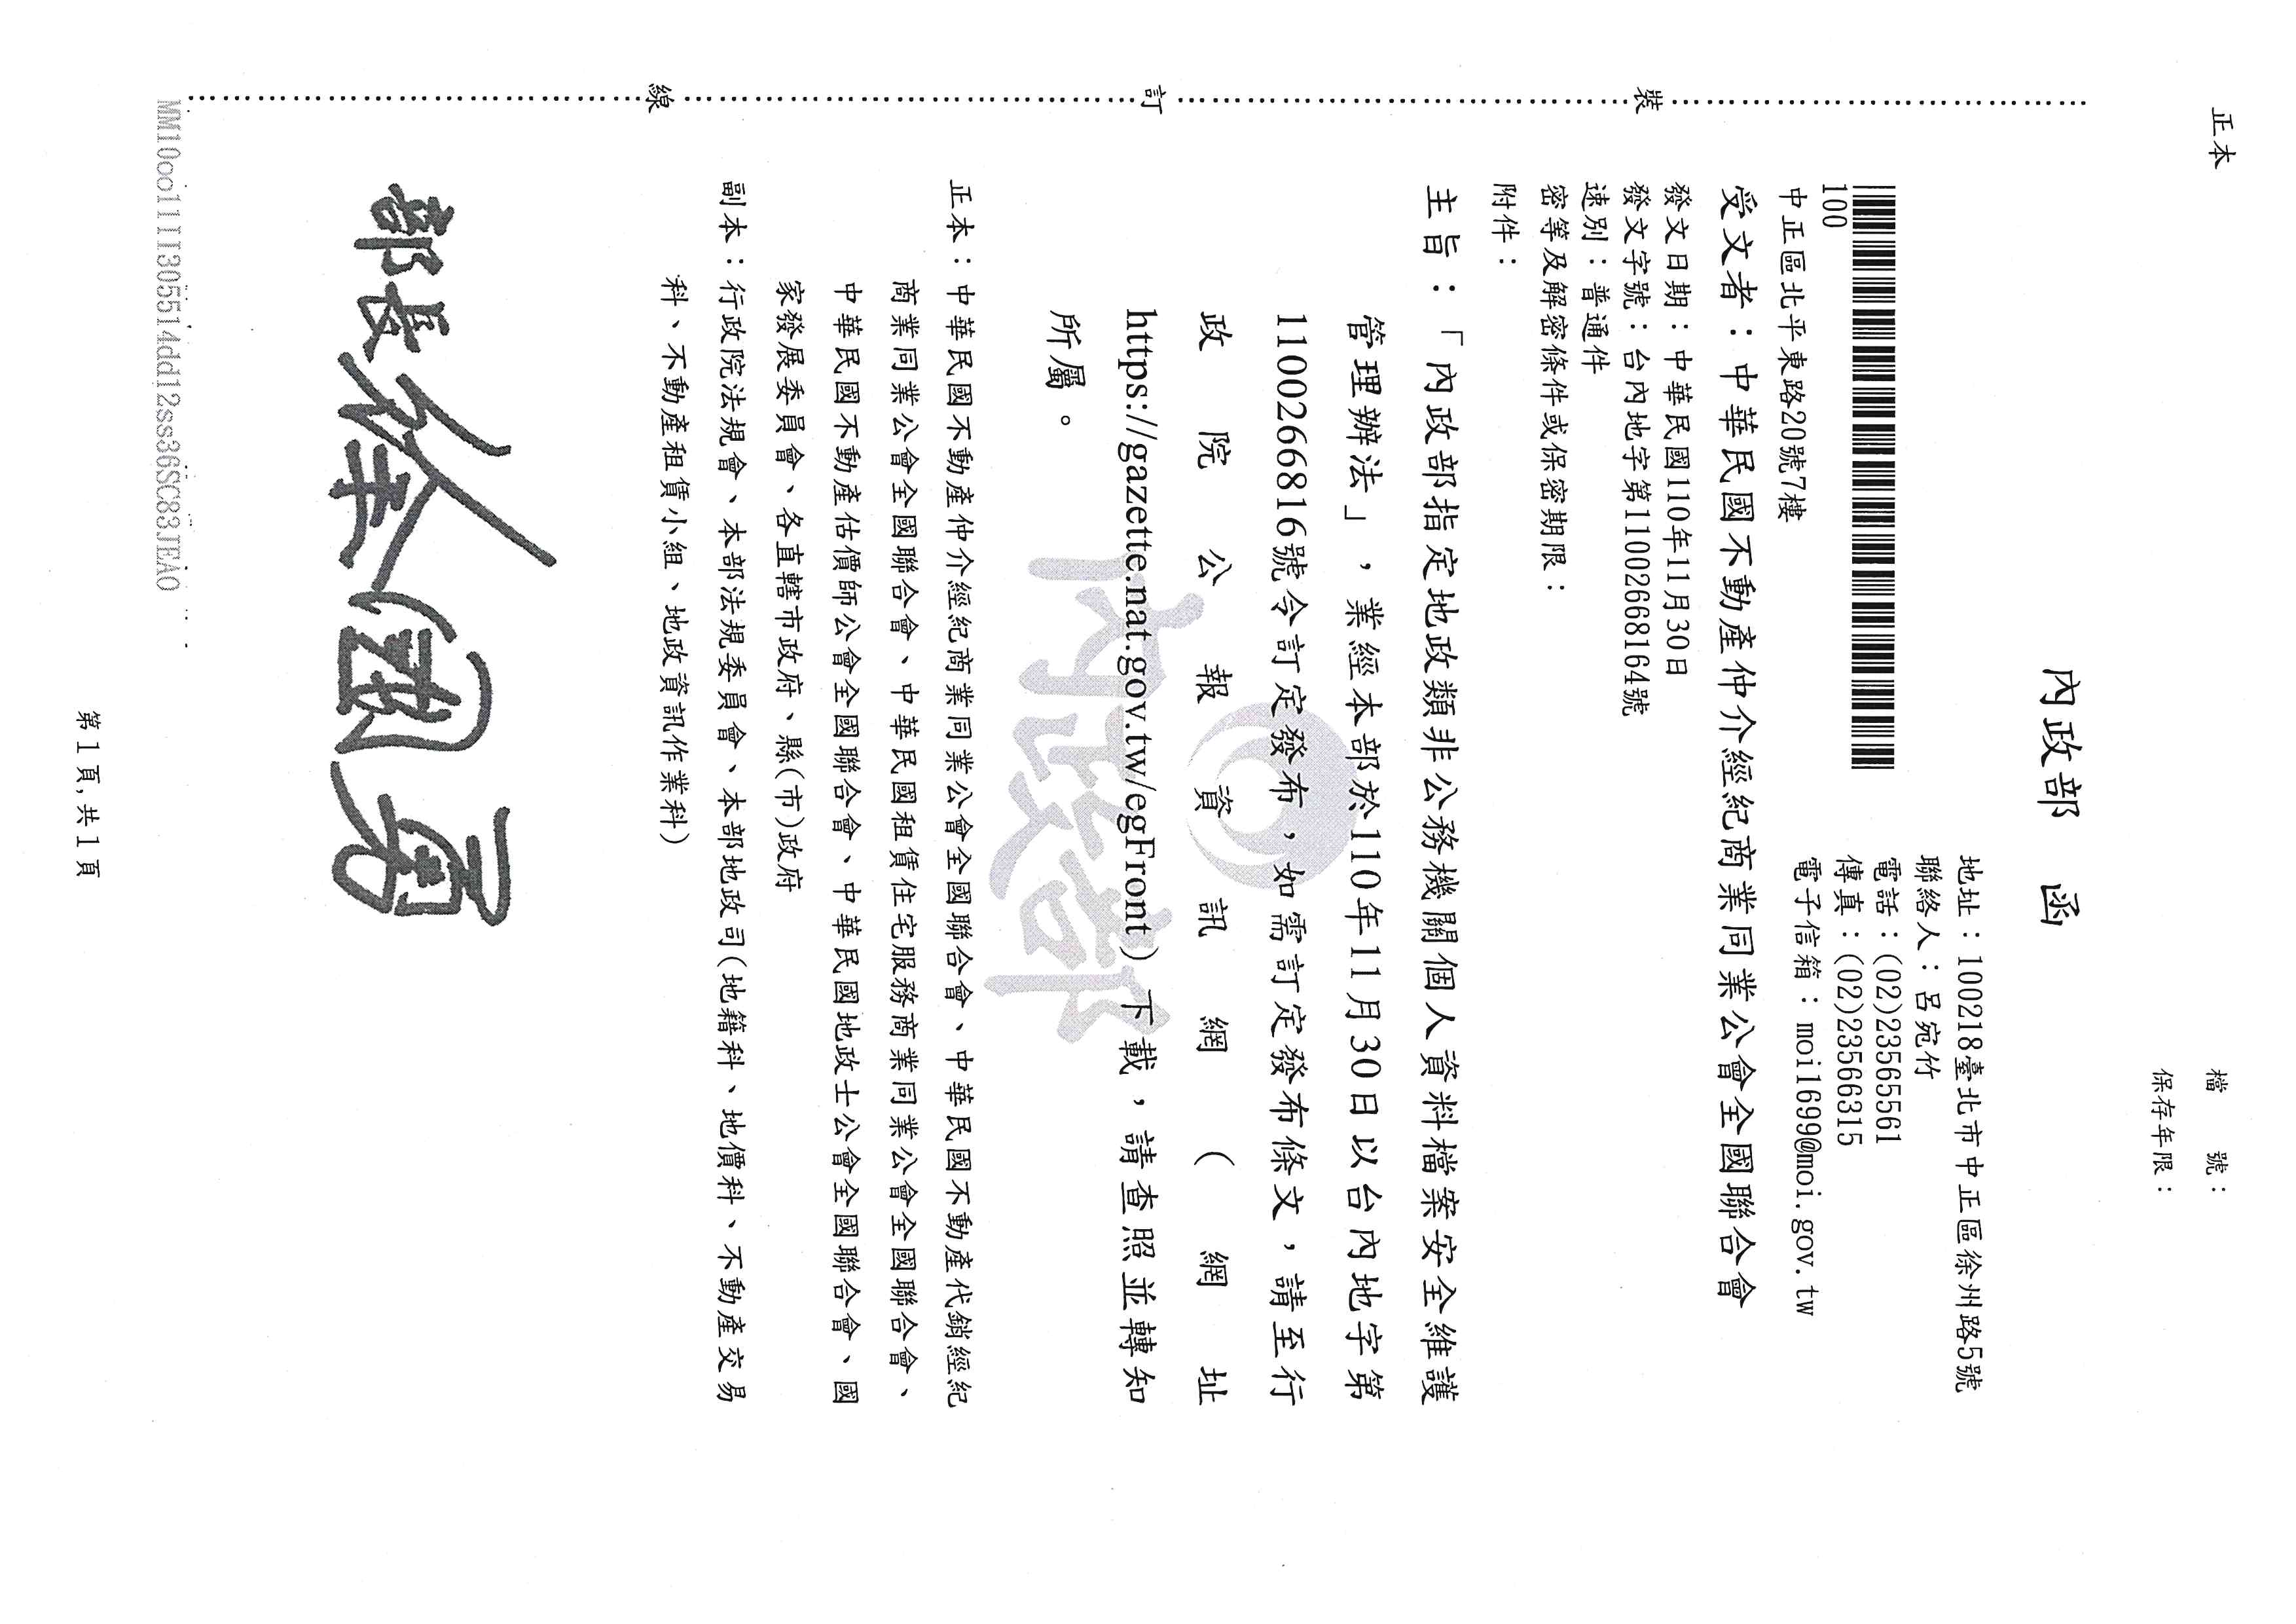 正本
檔　　號：
保存年限：
內政部　函
地址：100218臺北市中正區徐州路5號
聯絡人：呂宛竹
電話：(02)23565561
傳真：(02)23566315
電子信箱：moi1699@moi.gov.tw
100
中正區北平東路20號7樓
受文者：中華民國不動產仲介經紀商業同業公會全國聯合會
發文日期：中華民國110年11月30日
發文字號：台內地字第11002668164號
速別：普通件
密等及解密條件或保密期限：
附件：
主旨：「內政部指定地政類非公務機關個人資料檔案安全維護
管理辦法」，業經本部於110年11月30日以台內地字第
1100266816號令訂定發布，如需訂定發布條文，請至行
政院公報資訊網（網址
https://gazette.nat.gov.tw/egFront）下載，請查照並轉知
所屬。
正本：中華民國不動產仲介經紀商業同業公會全國聯合會、中華民國不動產代銷經紀
商業同業公會全國聯合會、中華民國租賃住宅服務商業同業公會全國聯合會、
中華民國不動產估價師公會全國聯合會、中華民國地政士公會全國聯合會、國
家發展委員會、各直轄市政府、縣(市)政府
副本：行政院法規會、本部法規委員會、本部地政司(地籍科、地價科、不動產交易
科、不動產租賃小組、地政資訊作業科)
部長徐國勇
裝
訂
線
內政部
第1頁，共1頁